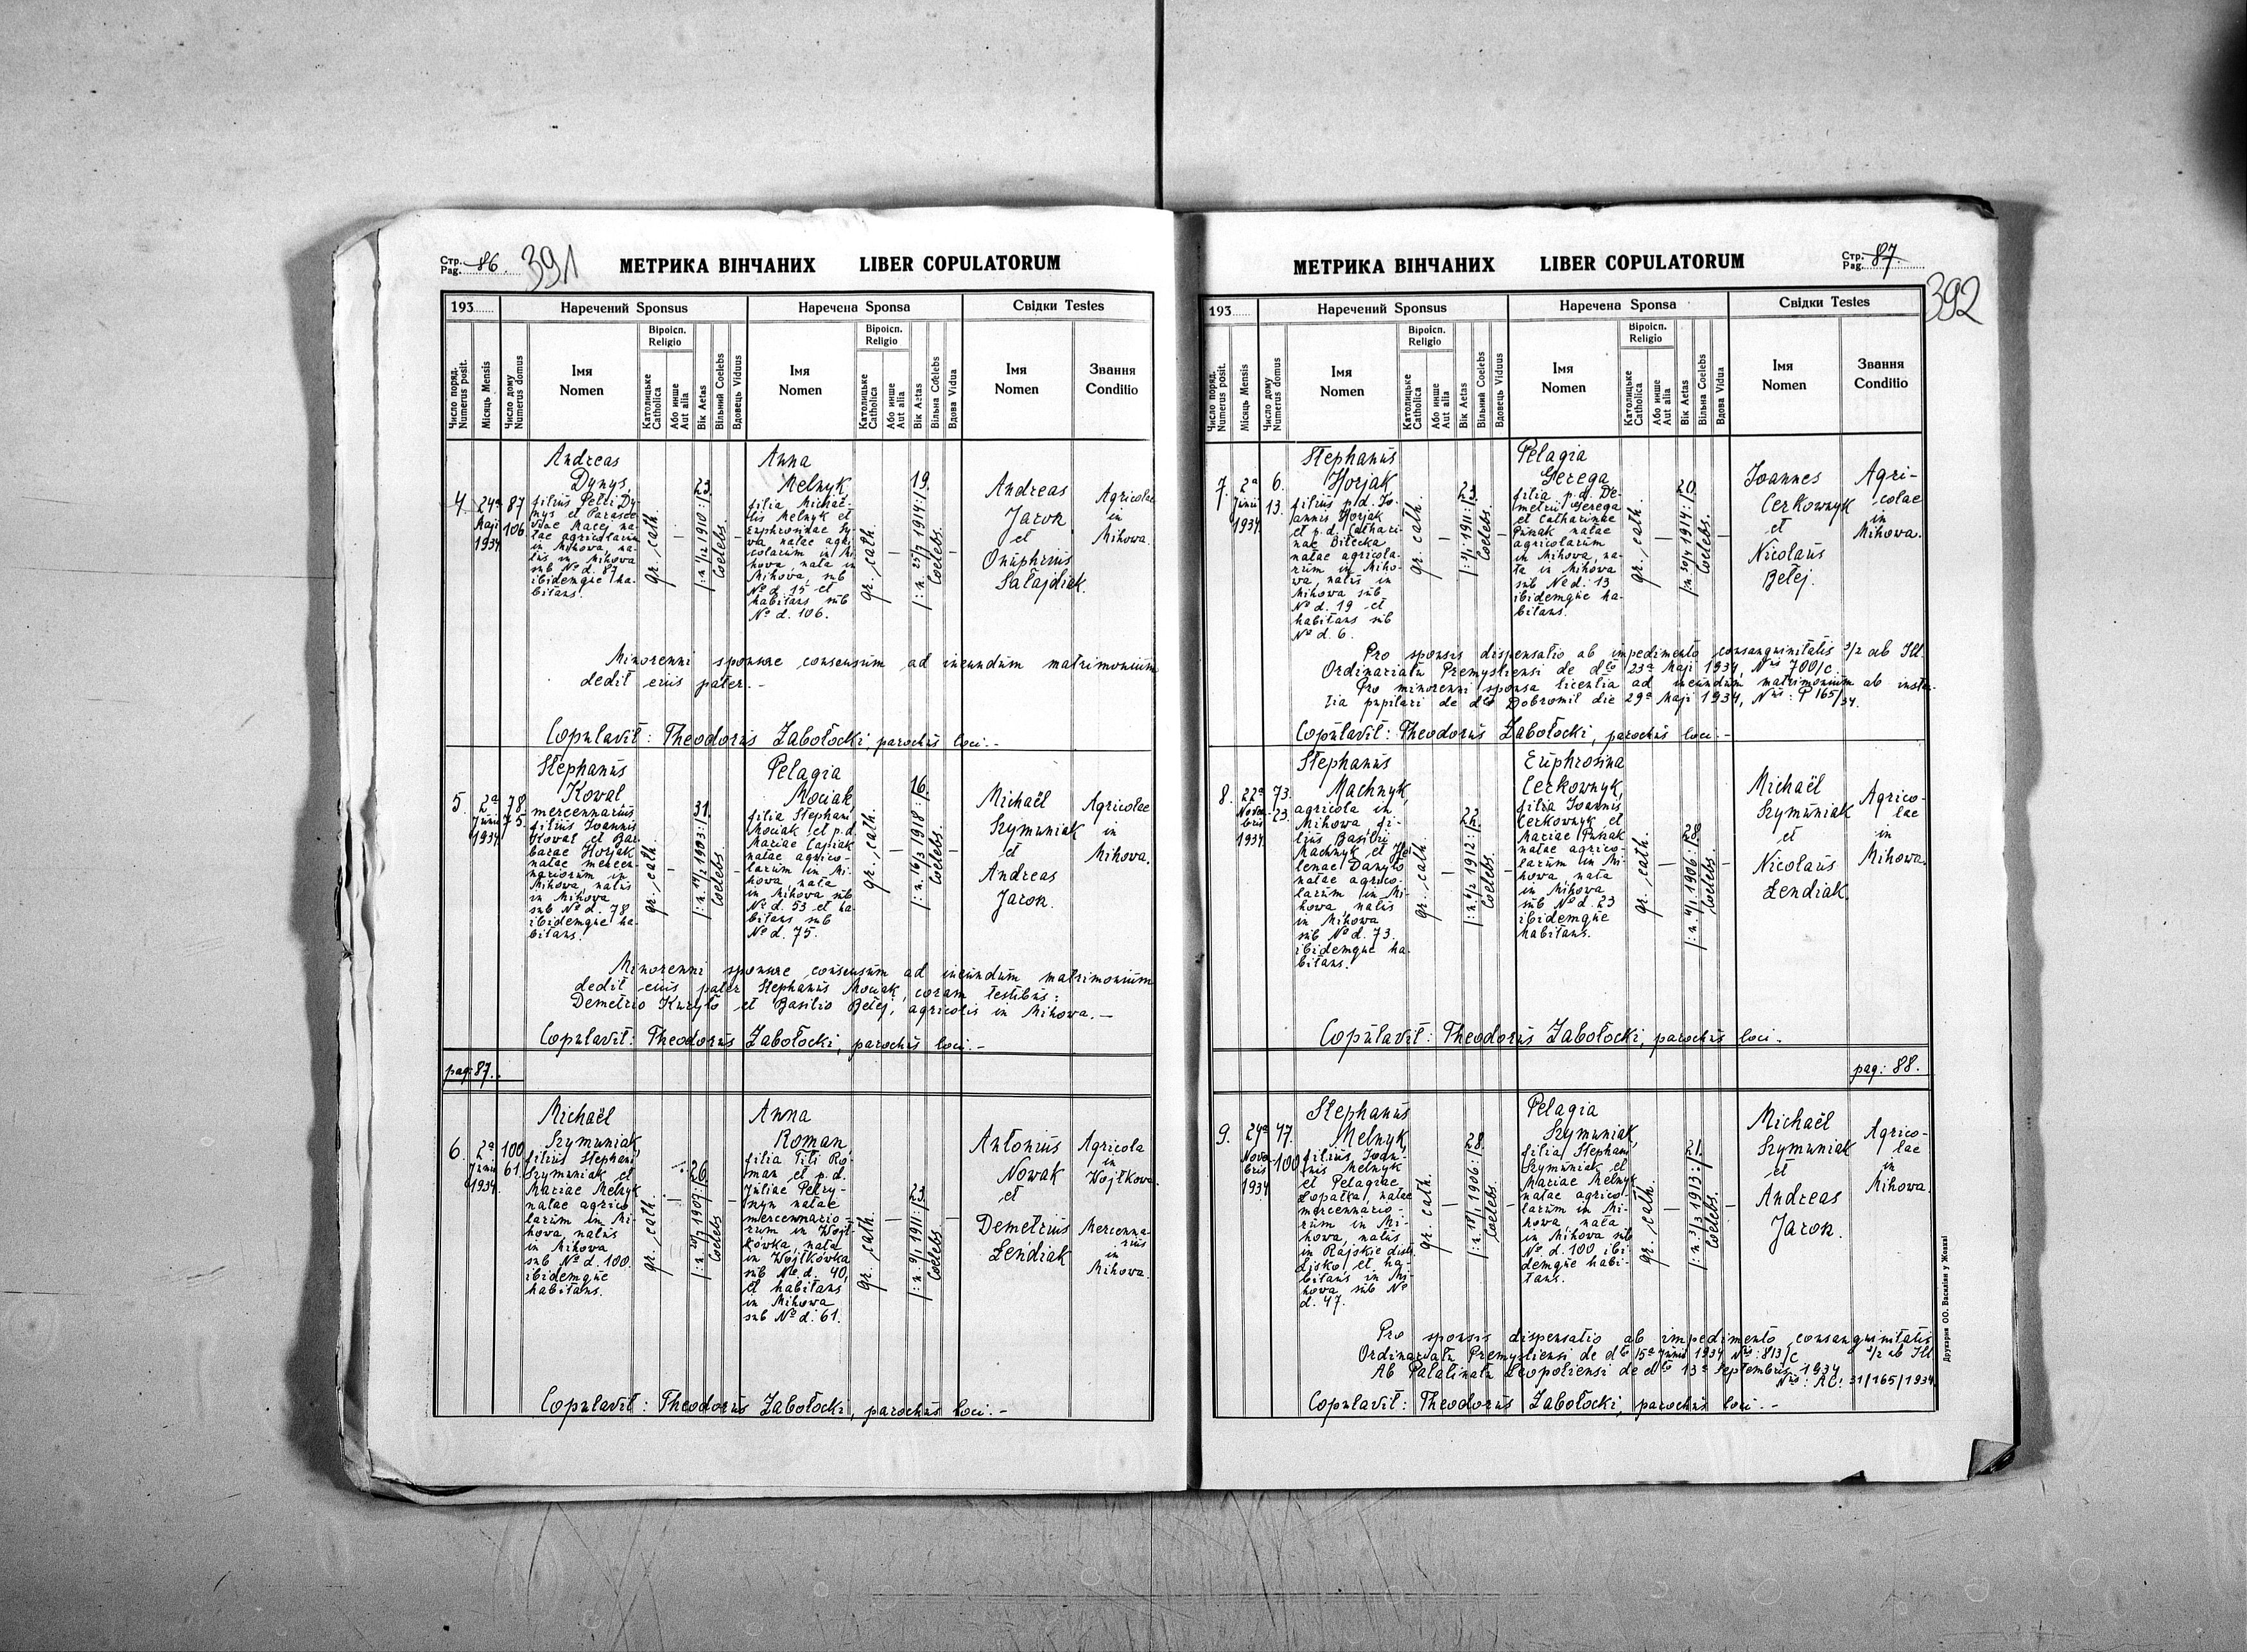 Стр. Pag. 86. 391
МЕТРИКА ВІНЧАНИХ LIBER COPULATORUM
193
Наречений Sponsus
Наречена Sponsa
Свідки Testes
Число поряд. Numerus posit.
Місяць Mensis
Число дому Numerus domus
Імя Nomen
Віроісп. Religio
Католицьке Catholica
Або инше Aut alia
Вік Aetas
Вільний Coelebs
Вдовець Viduus
Імя Nomen
Віроісп. Religio
Католицьке Catholica
Або инше Aut alia
Вік Aetas
Вільна Coelebs
Вдова Vidua
Імя Nomen
Звання Conditio
4.
24a
Maji
1934
87
106.
Andreas
Dynys,
filius Petri Dy-
nys et Parasce-
viae Maciej na-
tae agricolarum
in Mihowa, na-
tus in Mihowa
sub No d. 87
ibidemque ha-
bitans.
gr. cath.
23.
/:n. 1/12 1910:/
Coelebs
Anna
Melnyk
filia Michaë-
lis Melnyk et
Euphrosinae
natae agri-
colarum in Mi-
howa, nata in
Mihowa, sub
No d. 15 et
habitans sub
No d. 106.
gr. cath.
19.
/:n. 25/7 1914:/
Coelebs.
Andreas
Jaron
et
Onuphrius
Sałajdiak.
Agricolae
in
Mihowa.
Minorenni sponsae consensum ad ineundum matrimonium
dedit eius pater.-
Copulavit: Theodorus Zabołocki, parochus loci.-
5.
2a
Junii
1934
78.
75.
Stephanus
Kowal
mercennarius
filius Joannis
Kowal et Bar-
barae Horjak
natae mercen-
nariorum in
Mihowa, natus
in Mihowa
sub No d. 78
ibidemque ha-
bitans.
gr. cath.
31.
/:n. 17/2 1903:/
Coelebs
Pelagia
Mociak,
filia Stephani
Mociak et p.d.
Mariae Capiak
natae agrico-
larum in Mi-
howa nata
in Mihowa sub
No d. 53 et ha-
bitans sub
No d. 75.
gr. cath.
16.
/:n. 16/3 1918:/
Coelebs.
Michaël
Szymuniak
et
Andreas
Jaron.
Agricolae
in
Mihowa.
Minorenni sponsae consensum ad ineundum matrimonium
dedit eius pater Stephanus Mociak, coram testibus:
Demetrio Kuryło et Basilio Bełej, agricolis in Mihowa.-
Copulavit: Theodorus Zabołocki, parochus loci.-
pag: 87.
6.
2a
Junii
1934.
100
61.
Michaël
Szymuniak,
filius Stephani
Szymuniak et
Mariae Melnyk
natae agrico-
larum in Mi-
howa, natus
in Mihowa
sub No d. 100.
ibidemque
habitans.
gr. cath.
26.
/:n. 20/7 1907:/
Coelebs
Anna
Roman
filia Titi Ro-
man et p.d.
Juliae Petry-
nyn natae
mercennario-
rum in Wojt-
kówka, nata
in Wojtkówka
sub No d. 40,
et habitans
in Mihowa
sub No d. 61.
gr. cath.
23.
/:n. 9/1 1911:/
Coelebs.
Antonius
Nowak
et
Demetrius
Łendiak
Agricola
in
Wojtkowa.
Mercenna-
rius
in
Mihowa.
Copulavit: Theodorus Zabołocki, parochus loci.-
МЕТРИКА ВІНЧАНИХ LIBER COPULATORUM
Стр. Pag. 87. 392
193
Наречений Sponsus
Наречена Sponsa
Свідки Testes
Число поряд. Numerus posit.
Місяць Mensis
Число дому Numerus domus
Імя Nomen
Віроісп. Religio
Католицьке Catholica
Або инше Aut alia
Вік Aetas
Вільний Coelebs
Вдовець Viduus
Імя Nomen
Віроісп. Religio
Католицьке Catholica
Або инше Aut alia
Вік Aetas
Вільна Coelebs
Вдова Vidua
Імя Nomen
Звання Conditio
7.
2a
Junii
1934
6.
13.
Stephanus
Horjak
filius p.d. Jo-
annis Horjak
et p.d. Cathari-
nae Bilecka
natae agricola-
rum in Miho-
wa, natus in
Mihowa sub
No d. 19 et
habitans sub
No d. 6.
gr. cath.
23.
/:n. 1/1 1911:/
Coelebs.
Pelagia
Gerega
filia p.d. De-
metrii Gerega
et Catharinae
Punak natae
agricolarum
in Mihowa, na-
ta in Mihowa
sub No d. 13
ibidemque ha-
bitans.
gr. cath.
20.
/:n. 30/4 1914:/
Coelebs.
Joannes
Cerkownyk
et
Nicolaus
Bełej.
Agri-
colae
in
Mihowa.
Pro sponsis dispensatio ab impedimento consanguinitatis 3/2 ab Ill.
Ordinariatu Premysliensi de dto 23a Maji 1934, Nrus 700/c.
Pro minorenni sponsa licentia ad ineundum matrimonium ab instan-
tia pupilari de dto Dobromil die 29a Maji 1934, Nrus: P 165/34.
Copulavit: Theodorus Zabołocki, parochus loci.-
8.
22a
Novem-
bris
1934
73.
23.
Stephanus
Machnyk,
agricola in
Mihowa fi-
lius Basilii
Machnyk et He-
lenae Danyło
natae agrico-
larum in Mi-
howa natus
in Mihowa
sub No d. 73.
ibidemque ha-
bitans.
gr. cath.
22.
1912:/
Coelebs.
Euphrosina
Cerkownyk,
filia Joannis
Cerkownyk et
Mariae Punak
natae agrico-
larum in Mi-
howa nata
in Mihowa
sub No d. 23
ibidemque
habitans.
gr. cath.
28.
1906:/
Coelebs.
Michaël
Szymuniak
et
Nicolaus
Łendiak.
Agrico-
lae
in
Mihowa.
Copulavit: Theodorus Zabołocki, parochus loci.-
pag: 88.
9.
24a
Novem-
bris
1934
47.
100
Stephanus
Melnyk,
filius Joan-
nis Melnyk
et Pelagiae
Łopatka, natae
mercennario-
rum in Mi-
howa, natus
in Rajskie dist.
Lisko, et ha-
bitans in Mi-
howa, sub No
d. 47.
gr. cath.
28.
/:n. 18/1 1906:/
Coelebs.
Pelagia
Szymuniak,
filia Stephani
Szymuniak et
Mariae Melnyk
natae agrico-
larum in Mi-
howa, nata
in Mihowa sub
No d. 100, ibi-
demque habi-
tans.
gr. cath.
21.
/:n. 31/3 1913:/
Coelebs.
Michaël
Szymuniak
et
Andreas
Jaron.
Agrico-
lae
in
Mihowa.
Pro sponsis dispensatio ab impedimento consanguinitatis
Ordinariatu Premysliensi de dto 15a Junii 1934 Nrus: 813/c 3/2 ab Ill
Ab Palatinatu Leopoliensi de dto 13a Septembris 1934
Nrus: AC: 31/165/1934.
Copulavit: Theodorus Zabołocki, parochus loci.-
Друкарня ОО. Василіян у Жовкві